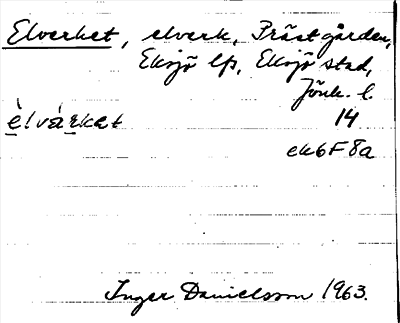 Elverket, elverk, Prästgården,
Eksjö lfs, Eksjö stad,
Jönk. l.
èlvárkət 14
ek6F8a
Inger Danielsson 1963.